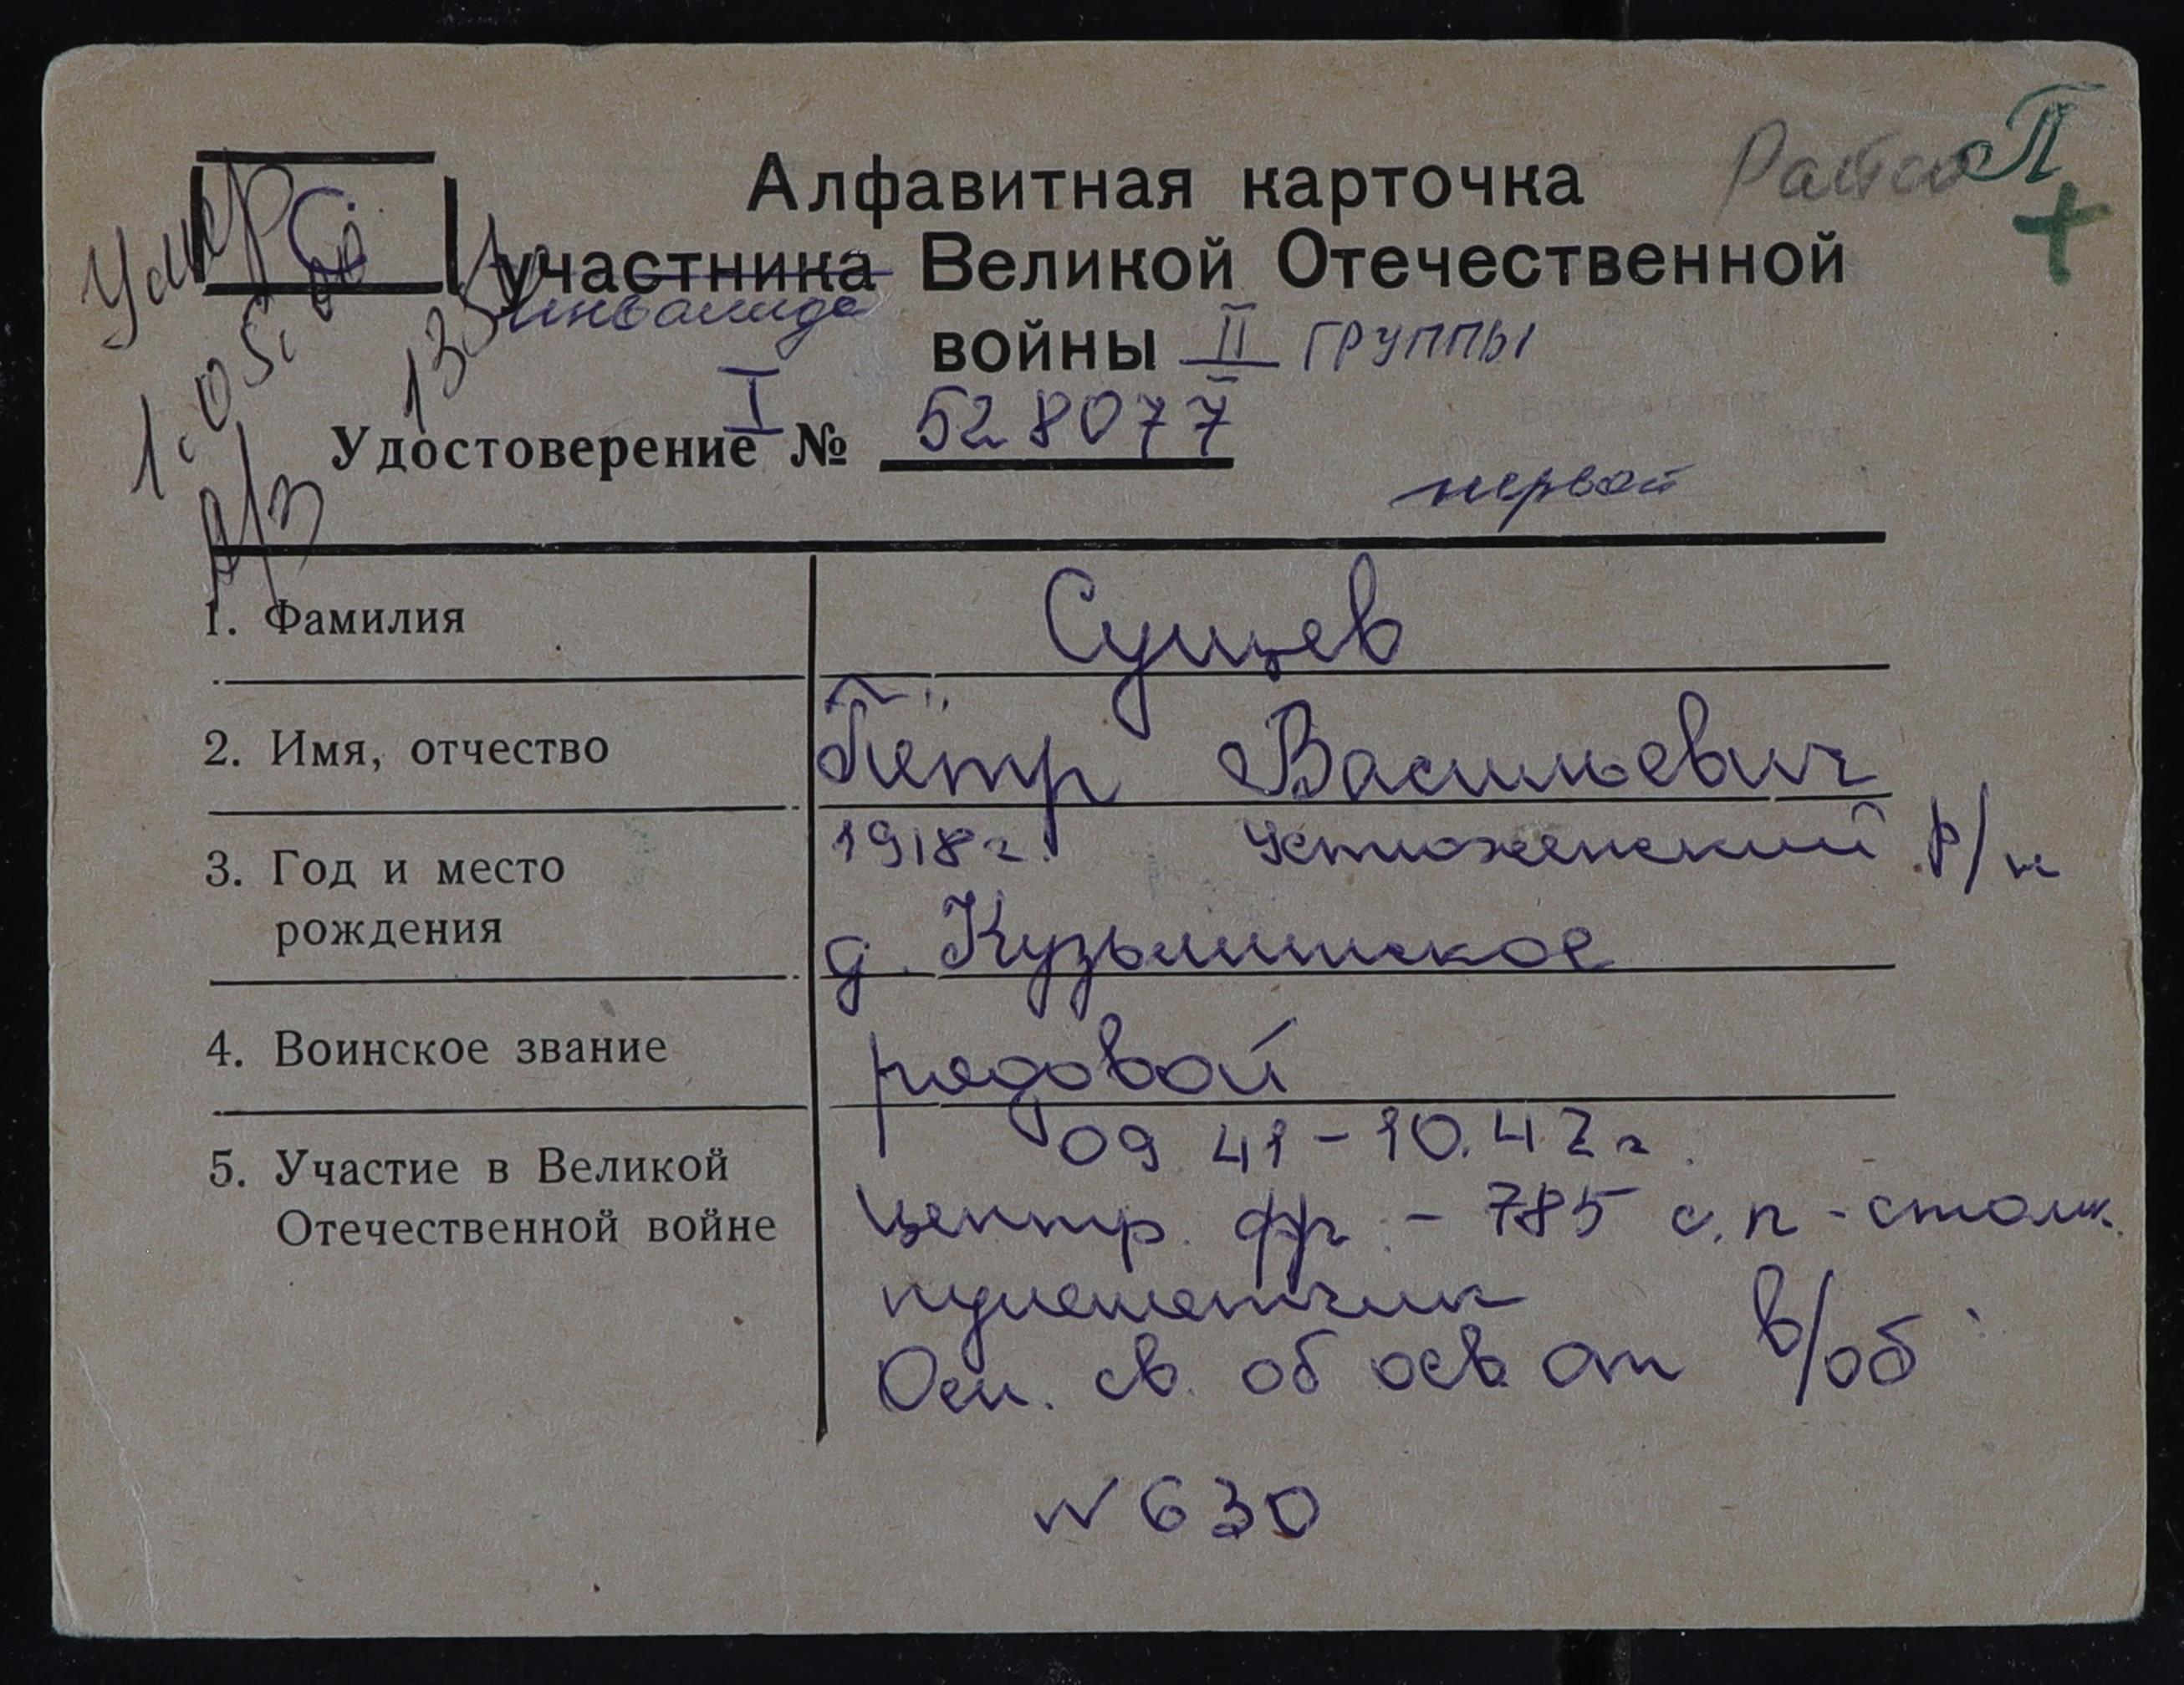 Умер
1.05.
А/З
С
Алфавитная карточка
участника Великой Отечественной
инвалида
войны II группы
I
Удостоверение № 528077
первой
П
+
1. Фамилия
Сущев
2. Имя, отчество
Пётр Васильевич
3. Год и место
рождения
1918 г. Устюженский р/н
д. Кузьминское
4. Воинское звание
рядовой
5. Участие в Великой
Отечественной войне
09 41 - 10.42 г.
центр. фр. - 785 с.п - станк.
пулеметчик
Осн. св. об осв. от в/об
N 630